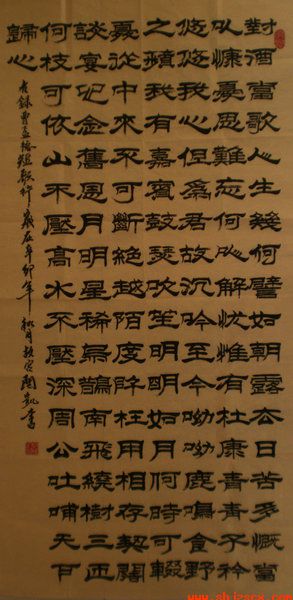 對酒當歌人生幾何譬如朝露去日苦多慨當
以慷憂思難忘何以解憂惟有杜康青青子衿
悠悠我心但爲君故沉吟至今呦呦鹿鳴食野
之蘋我有嘉賓鼓瑟吹笙明明如月何時可輟
憂從中來不可斷絕越陌度阡枉用相存契闊
談宴心念舊恩月明星稀烏鵲南飛繞樹三匝
何枝可依山不厭高水不厭深周公吐哺天下
歸心
右錄曹孟德短歌行歲在辛卯年 月 書
www.shizscx.com